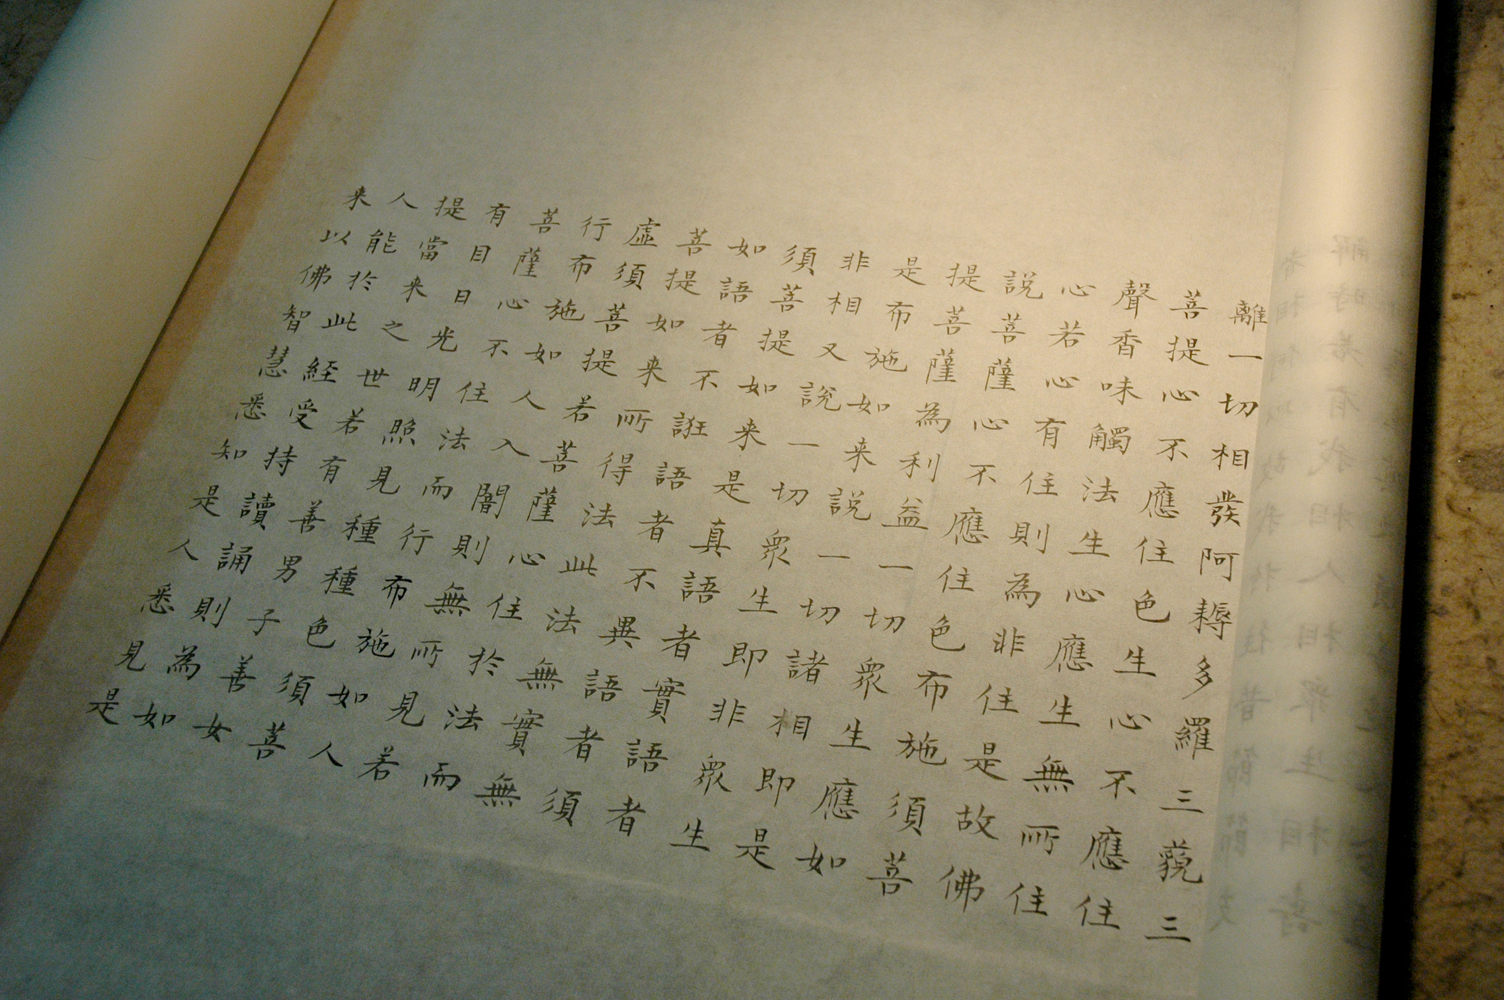 離一切相發阿耨多羅三藐三
菩提心不應住色生心不應住
聲香味觸法生心應生無所住
心若心有住則為非住是故佛
說菩薩心不應住色布施須菩
提菩薩為利益一切眾生應如
是布施如来說一切諸相即是
非相又說一切眾生即非眾生
須菩提如来是真語者實語者
如語者不誑語者不異語者須
菩提如来所得法此法無實無
虛須菩提若菩薩心住於法而
行布施如人入闇則無所見若
菩薩心不住法而行布施如人
有目日光明照見種種色須菩
提當来之世若有善男子善女
人能於此経受持讀誦則為如
来以佛智慧悉知是人悉見是